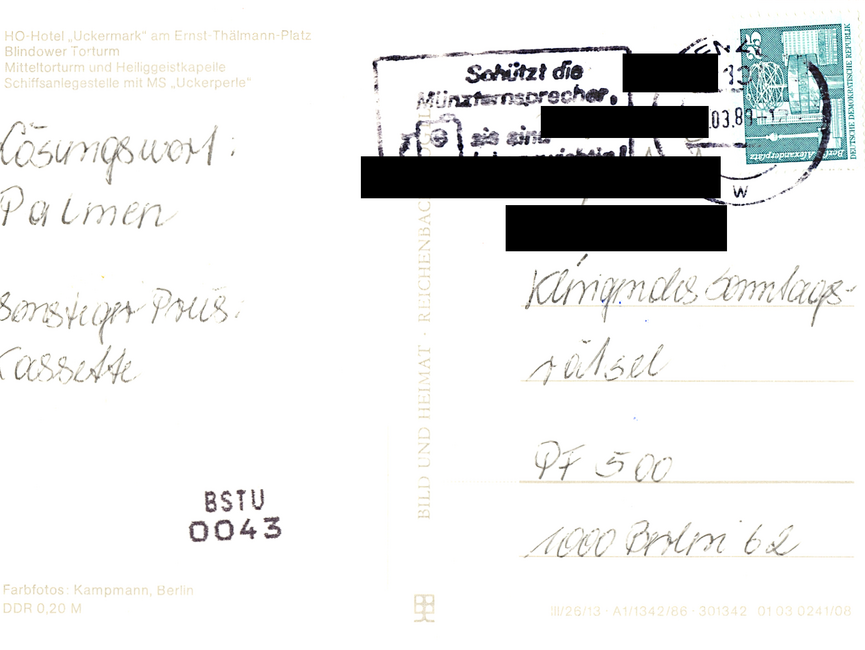 HO-Hotel „Uckermark" am Ernst-Thälmann-Platz
Blindower Torturm
Mitteltorturm und Heiliggeistkapelle
Schiffsanlegestelle mit MS „Uckerperle"
Lösungswort:
Palmen
sonstiger Preis:
Kassette
BSTU
0043
Farbfotos: Kampmann, Berlin
DDR 0,20 M
Schützt die
Münzfernsprecher,
sie sind
BILD UND HEIMAT · REICHENBAC
.03.89-12
W
25
DEUTSCHE DEMOKRATISCHE REPUBLIK
Berlin, Alexanderplatz
Klingendes Sonntags-
rätsel
PF 500
1000 Berlin 62
III/26/13 · A1/1342/86 · 301342 01 03 0241/08